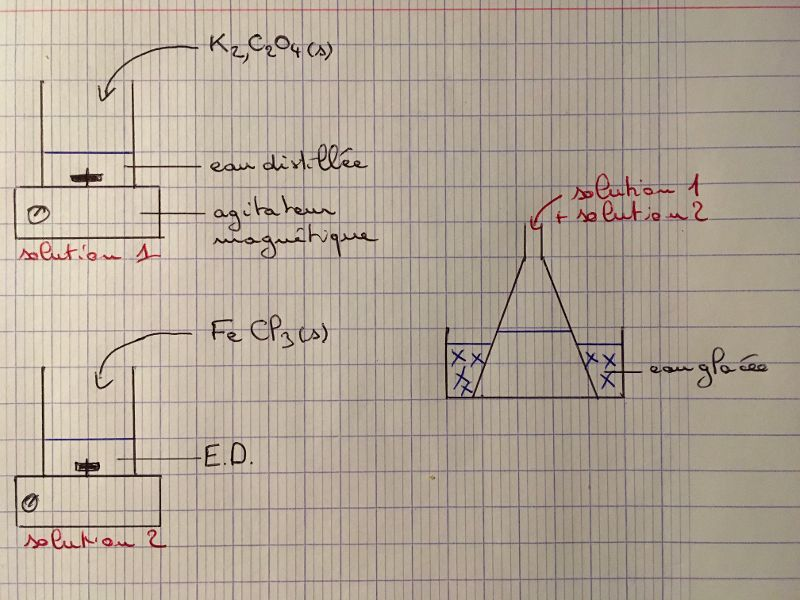 K2,C2O4(s)
eau distillée
agitateur
magnétique
solution 1
FeCl3(s)
E.D.
solution 2
solution 1
+ solution 2
eau glacée